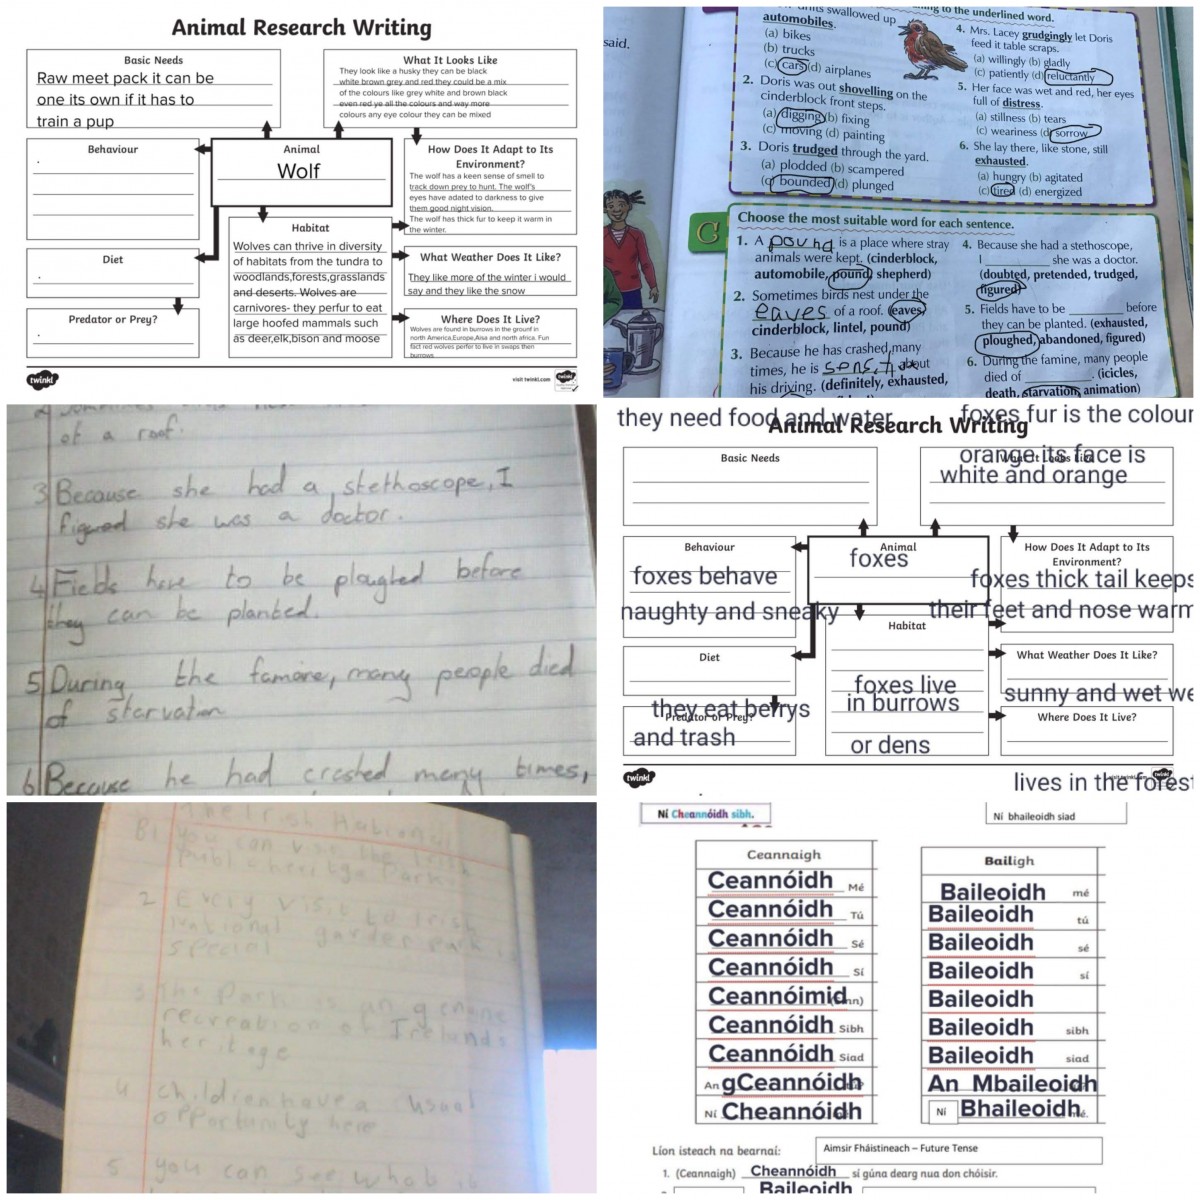 Animal Research Writing
Basic Needs
Raw meet pack it can be
one its own if it has to
train a pup
What It Looks Like
They look like a husky they can be black
white brown grey and red they could be a mix
of the colours like grey white and brown black
even red ye all the colours and way more
colours any eye colour they can be mixed
Behaviour
Animal
Wolf
How Does It Adapt to Its
Environment?
The wolf has a keen sense of smell to
track down prey to hunt. The wolf's
eyes have adated to darkness to give
them good night vision.
The wolf has thick fur to keep it warm in
the winter.
Habitat
Wolves can thrive in diversity
of habitats from the tundra to
woodlands,forests,grasslands
and deserts. Wolves are
carnivores- they perfur to eat
large hoofed mammals such
as deer,elk,bison and moose
Diet
What Weather Does It Like?
They like more of the winter i would
say and they like the snow
Predator or Prey?
Where Does It Live?
Wolves are found in burrows in the grounf in
north America,Europe,Aisa and north africa. Fun
fact red wolves perfer to live in swaps then
burrows
twinkl
visit twinkl.com
said.
swallowed up
automobiles.
(a) bikes
(b) trucks
(c) cars (d) airplanes
2. Doris was out shovelling on the
cinderblock front steps.
(a) digging (b) fixing
(c) moving (d) painting
3. Doris trudged through the yard.
(a) plodded (b) scampered
(c) bounded (d) plunged
to the underlined word.
4. Mrs. Lacey grudgingly let Doris
feed it table scraps.
(a) willingly (b) gladly
(c) patiently (d) reluctantly
5. Her face was wet and red, her eyes
full of distress.
(a) stillness (b) tears
(c) weariness (d) sorrow
6. She lay there, like stone, still
exhausted.
(a) hungry (b) agitated
(c) tired (d) energized
C
Choose the most suitable word for each sentence.
1. A pound is a place where stray
animals were kept. (cinderblock,
automobile, pound, shepherd)
2. Sometimes birds nest under the
eaves of a roof. (eaves,
cinderblock, lintel, pound)
3. Because he has crashed many
times, he is about
his driving. (definitely, exhausted,
4. Because she had a stethoscope,
I ________ she was a doctor.
(doubted, pretended, trudged,
figured)
5. Fields have to be ________ before
they can be planted. (exhausted,
ploughed, abandoned, figured)
6. During the famine, many people
died of ________. (icicles,
death, starvation, animation)
of a roof.
3 Because she had a stethoscope, I
figured she was a doctor.
4 Fields have to be ploughed before
they can be planted.
5 During the famine, many people died
of starvation
6 Because he had crashed many times,
they need food and water
Animal Research Writing
foxes fur is the colour
orange its face is
white and orange
Basic Needs
Behaviour
foxes behave
naughty and sneaky
Animal
foxes
How Does It Adapt to Its
Environment?
foxes thick tail keeps
their feet and nose warm
Habitat
foxes live
in burrows
or dens
Diet
they eat berrys
and trash
Predator or Prey?
What Weather Does It Like?
sunny and wet we
Where Does It Live?
lives in the forest
twinkl
The Irish
B1 you can visit the Irish
heritage Park
2 Every visit to Irish
national garden park is
special
3 The Park is
recreation of Irelands
heritage
4 children have a usual
opportunity here
5 you can see what
Ní Cheannóidh sibh.
Ní bhaileoidh siad
Ceannaigh
Ceannóidh Mé
Ceannóidh Tú
Ceannóidh Sé
Ceannóidh Sí
Ceannóimid
Ceannóidh Sibh
Ceannóidh Siad
An gCeannóidh
Ní Cheannóidh
Bailigh
Baileoidh mé
Baileoidh tú
Baileoidh sé
Baileoidh sí
Baileoidh
Baileoidh sibh
Baileoidh siad
An Mbaileoidh
Ní Bhaileoidh
Líon isteach na bearnaí:
Aimsir Fháistineach – Future Tense
1. (Ceannaigh) Cheannóidh sí gúna dearg nua don chóisir.
Baileoidh